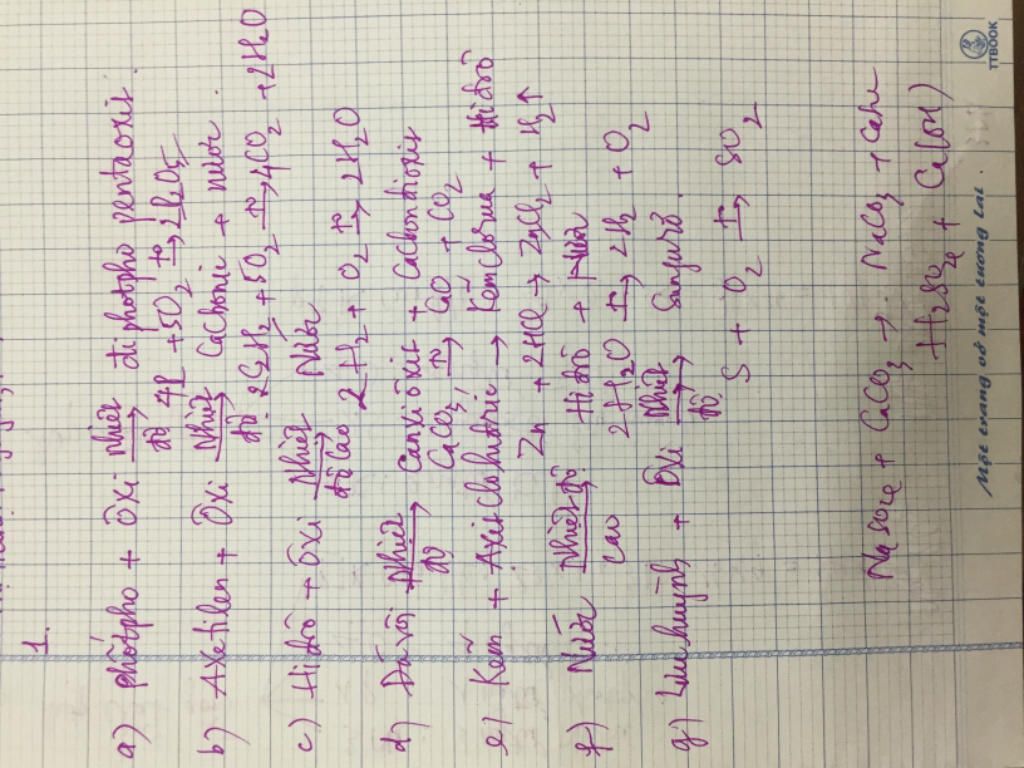 1.
a) phốtpho + Ôxi Nhiệt độ → điphotpho pentaoxit.
4P + 5O2 t° → 2P2O5
b) Axetilen + Ôxi Nhiệt độ → Cacbonic + nước
2C2H2 + 5O2 t° → 4CO2 + 2H2O
c) Hiđrô + Ôxi Nhiệt độ cao → Nước
2H2 + O2 t° → 2H2O
d) Đá vôi Nhiệt độ → Canxi ôxit + Cacbon đioxit
CaCO3 t° → CaO + CO2
e) Kẽm + Axit Clohiđric → Kẽm clorua + Hiđrô
Zn + 2HCl → ZnCl2 + H2↑
f) Nước Nhiệt độ cao → Hiđrô +
2H2O t° → 2H2 + O2
g) Lưu huỳnh + Ôxi Nhiệt độ →
S + O2 t° → SO2
+ CaCO3 → NaCO3 +
H2SO4 + Ca(OH)
Một trang vở một tương lai.
TTBOOK